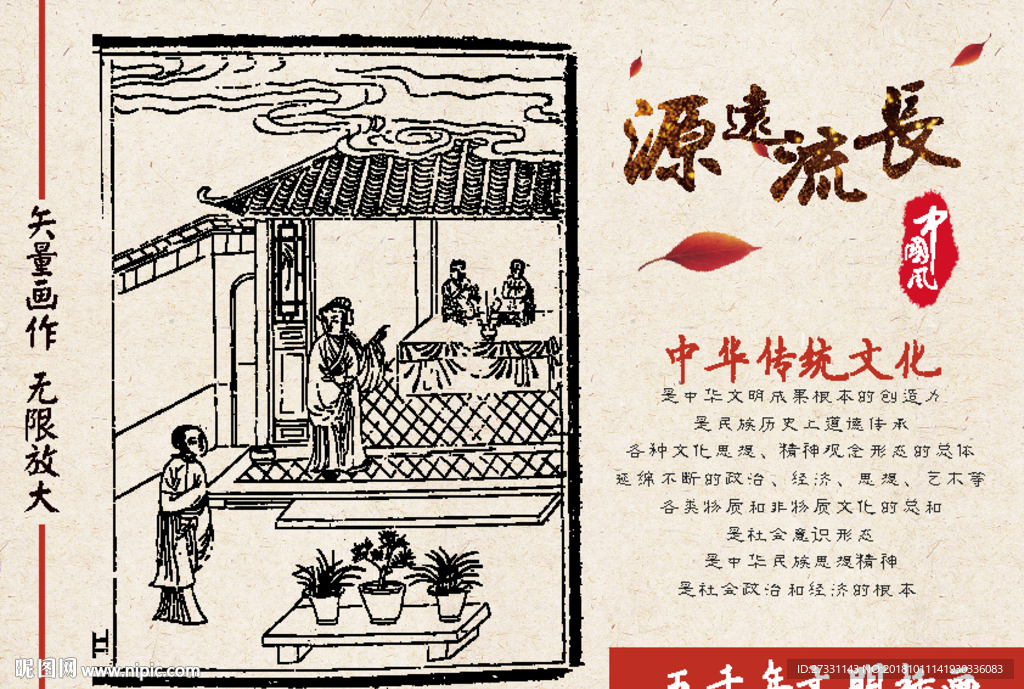 矢量画作 无限放大
源遠流長
中國风
中华传统文化
是中华文明成果根本的创造力
是民族历史上道德传承
各种文化思想、精神观念形态的总体
延绵不断的政治、经济、思想、艺术等
各类物质和非物质文化的总和
是社会意识形态
是中华民族思想精神
是社会政治和经济的根本
五千年文明
昵图网 www.nipic.com
ID:27331143 NO:20181011141930336083